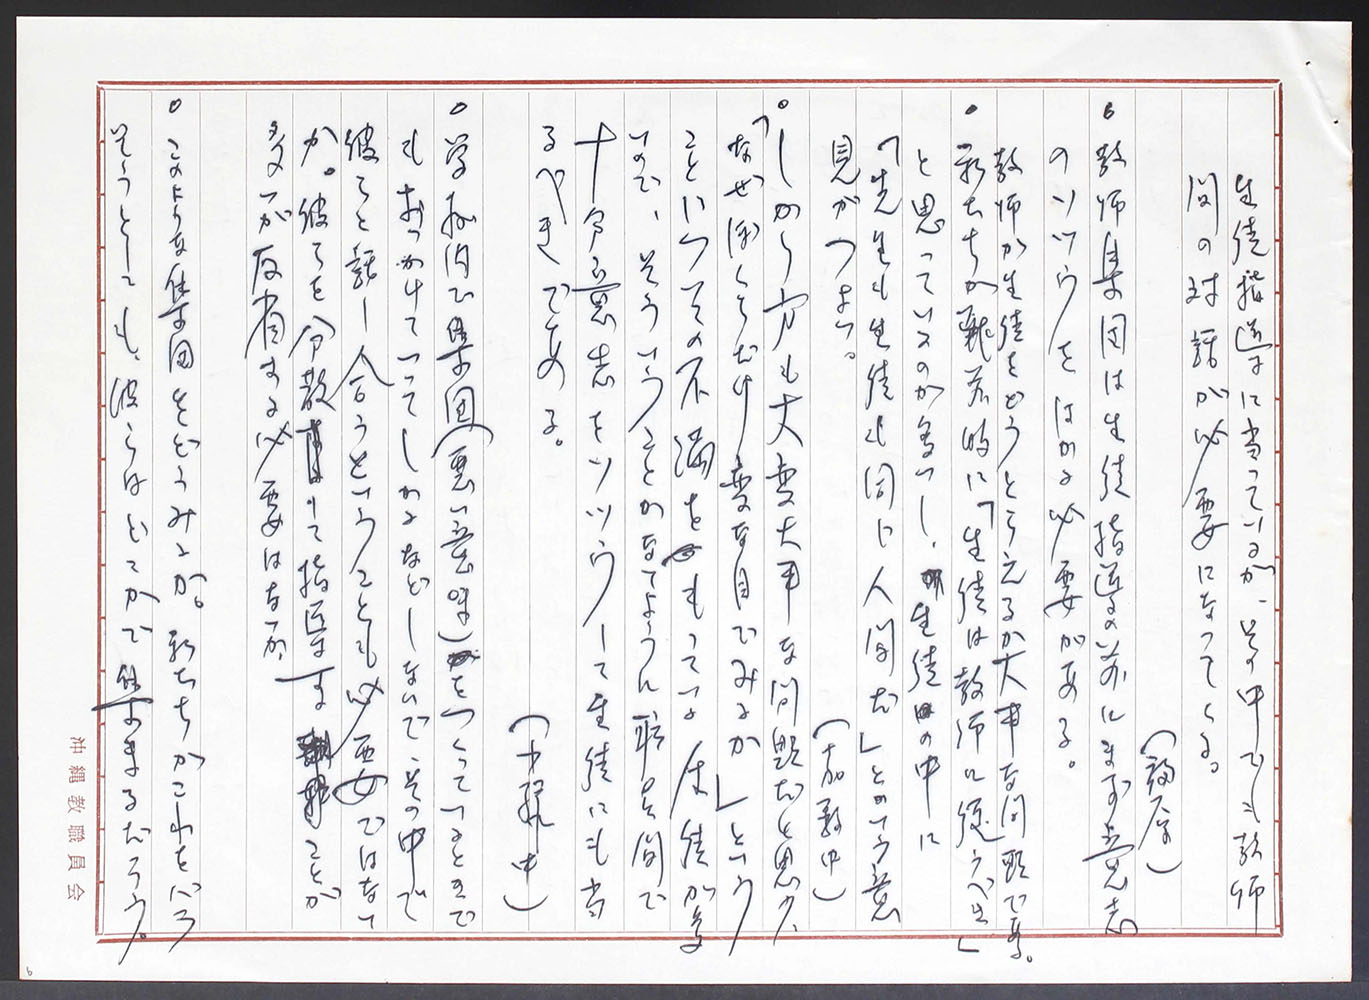 生徒指導に当っているが、その中でも教師
間の対話が必要になってくる。
(
)
。教師集団は生徒指導の前にまず意志
のソツウをはかる必要がある。
教師が生徒をどうとらえるか大事な問題である。
。私たちが職業的に「生徒は教師に従うべき」
と思っているのが多いし、生徒の中に
「先生も生徒も同じ人間だ」とゆう意
見がつよい。
(嘉数中)
。しかり方も大変大事な問題だと思う、
「なぜ僕らだけ変な目でみるか」という
ことについての不満をもっている生徒が多
いので、そういうことがないように職員間で
十分意志をソツウして生徒にも当
るべきである。
(小禄中)
。学校内で集団(悪い意味)をつくっているときで
もおっかけていってしかるなどしないで、その中で
彼らと話し合うということも必要ではない
か。彼らを分散して指導することが
多々が反省する必要はないか
。このような集団をどうみるか。私たちがこれをバラ
そうとしても、彼らはどこかで集まるだろう。
沖縄教職員会
6